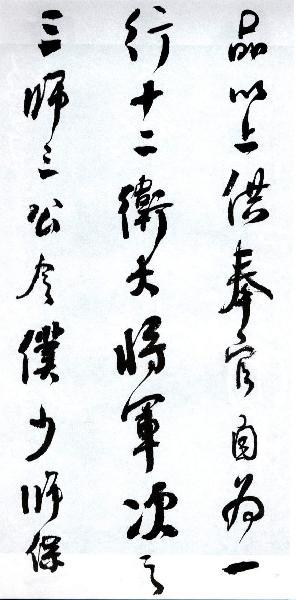 品以上供奉官自為一
行十二衛大將軍次之
三師三公令僕少師保